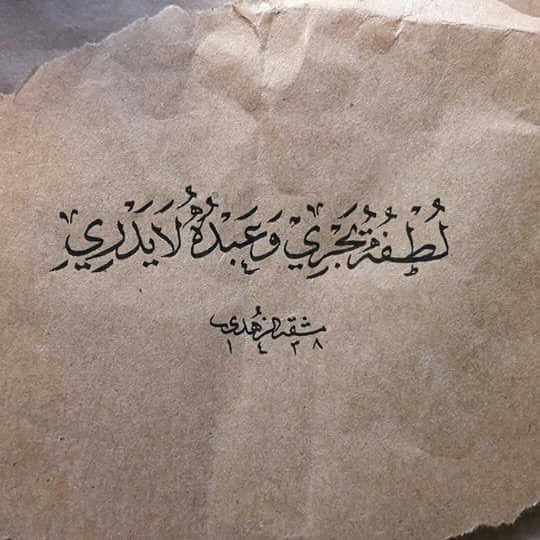 لُطْفُهُ يَجْرِيْ وَعَبْدُهُ لَا يَدْرِيْ
مشقه الزهدي
١٤٣٨